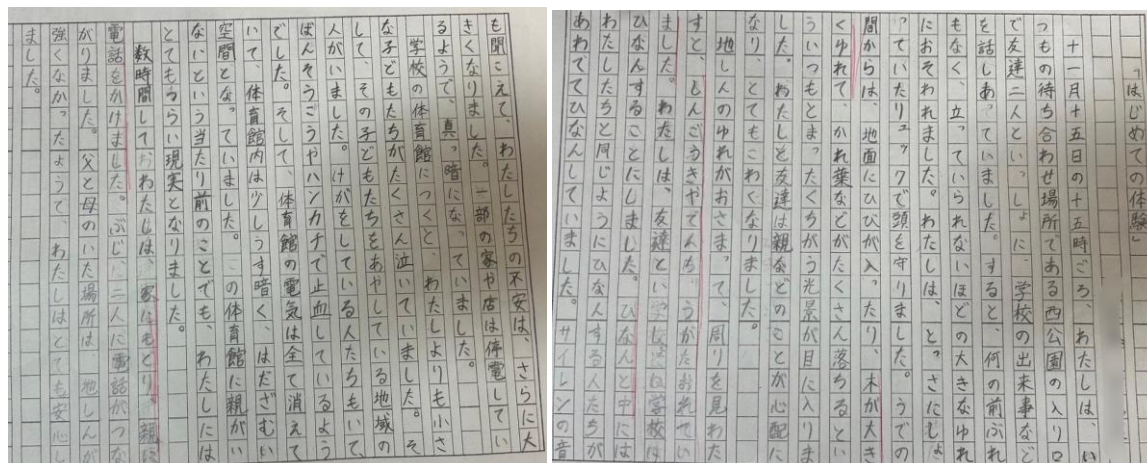 「はじめての体験」
十一月十五日の十五時ごろ、わたしは、い
つもの待ち合わせ場所である西公園の入り口
で友達二人といっしょに、学校の出来事など
を話しあっていました。すると、何の前ぶれ
もなく、立っていられないほどの大きなゆれ
におそわれました。わたしは、とっさにしょ
っていたリュックで頭を守りました。うでの
間からは、地面にひびが入ったり、木が大き
くゆれて、かれ葉などがたくさん落ちるとい
ういつもとまったくちがう光景が目に入りま
した。わたしと友達は親などのことが心配に
なり、とてもこわくなりました。
地しんのゆれがおさまって、周りを見わた
すと、しんごうきやでんちゅうがたおれてい
ました。わたしは、友達と
ひなんすることにしました。ひなんと中には
わたしたちと同じようにひなんする人たちが
あわててひなんしていました。サイレンの音
も聞こえて、わたしたちの不安は、さらに大
きくなりました。一部の家や店は停電してい
るようで、真っ暗になっていました。
学校の体育館につくと、わたしよりも小さ
な子どもたちがたくさん泣いていました。そ
して、その子どもたちをあやしている地域の
人がいました。けがをしている人たちもいて、
ばんそうこうやハンカチで止血しているよう
でした。そして、体育館の電気は全て消えて
いて、体育館内は少しうす暗く、はだざむい
空間となっていました。この体育館に親がい
ないという当たり前のことでも、わたしには
とてもつらい現実となりました。
数時間しておわたしは、家にもどり、親に
電話をかけました。ぶじに二人に電話がつな
がりました。父と母のいた場所は、地しんが
強くなかったようで、わたしはとても安心し
ました。